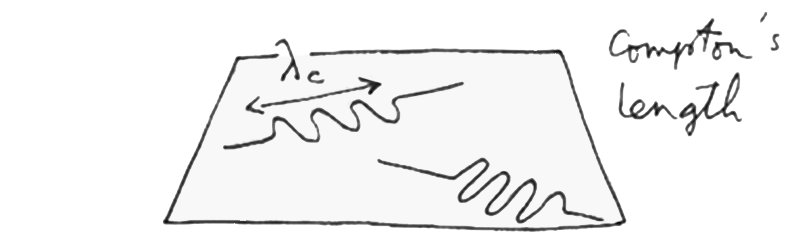 λc
Compton's
length